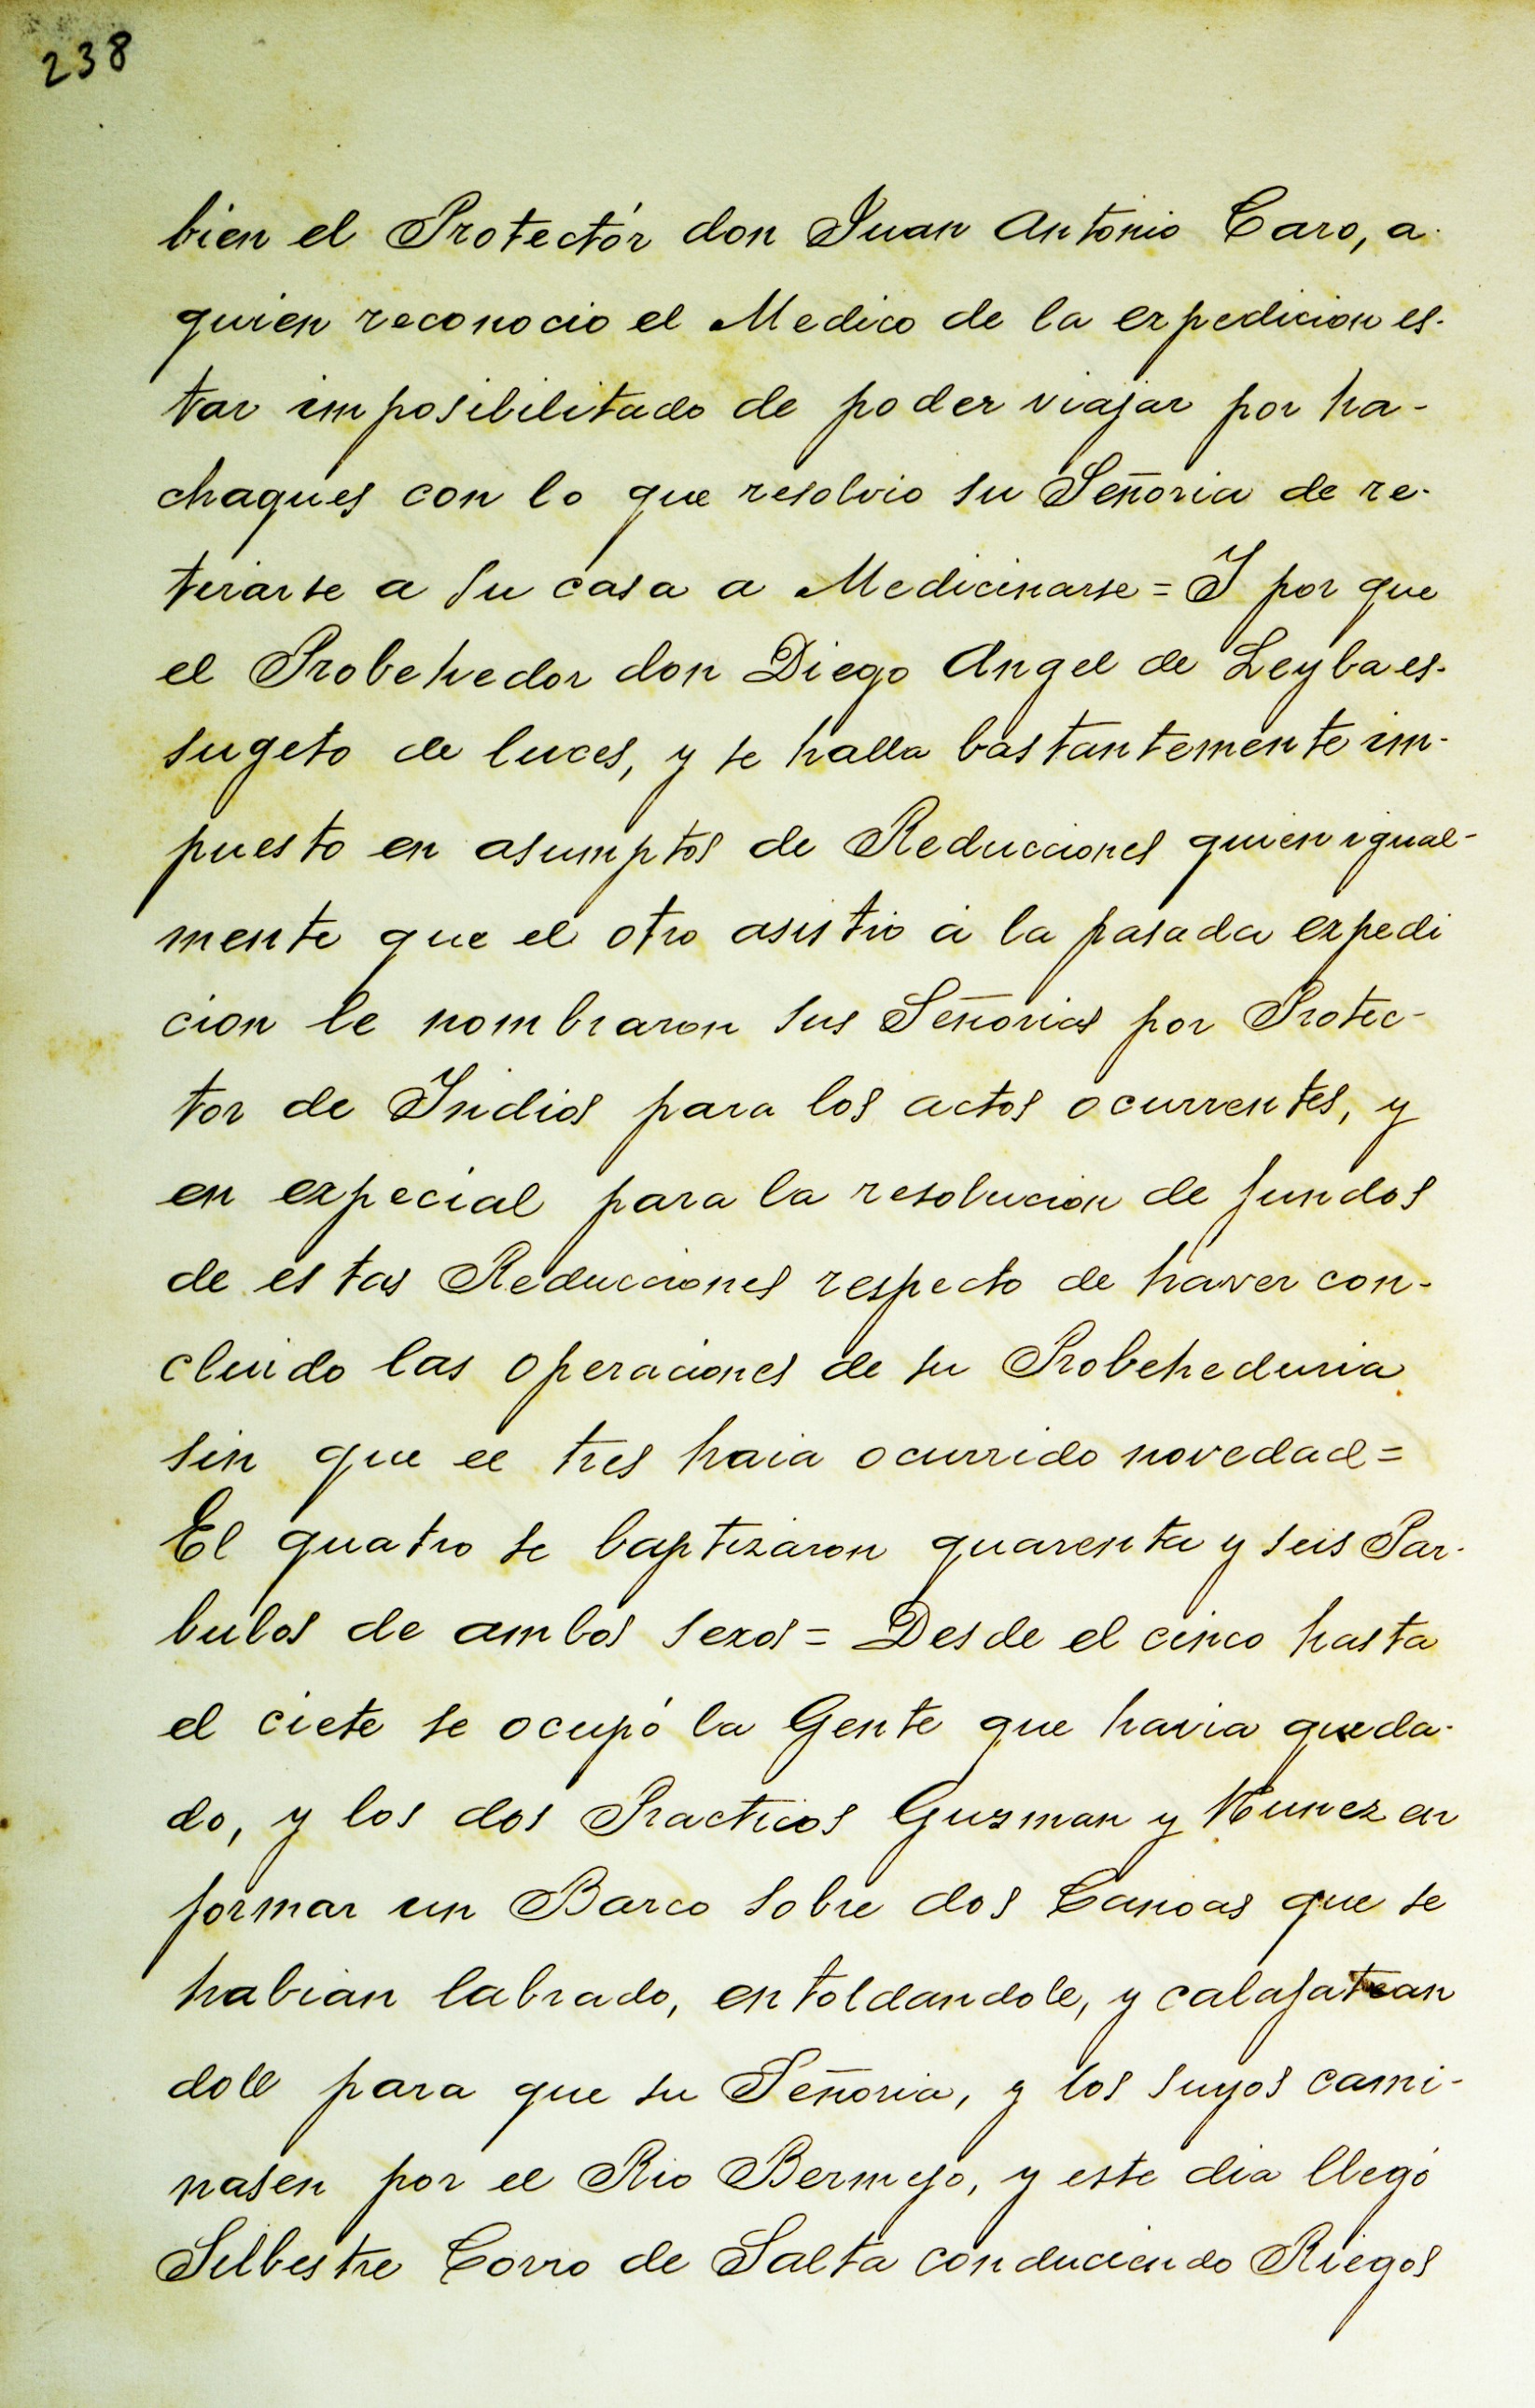 238
bien el Protectór don Juan Antonio Caro, a
quien reconocio el Medico de la expedicion es-
tar imposibilitado de poder viajar por ha-
chaques con lo que resolvio su Señoria de re-
tirarse a su casa a Medicinarse = I por que
el Probehedor don Diego Angel de Leyba es-
sugeto de luces, y se halla bastantemente im-
puesto en asumptos de Reducciones quien igual-
mente que el otro asistio a la pasada expedi
cion le nombraron sus Señorias por Protec-
tor de Indios para los actos ocurrentes, y
en expecial para la resolucion de fundos
de estas Reducciones respecto de haver con-
cluido las operaciones de su Probeheduria
sin que el tres haia ocurrido novedad =
El quatro se baptizaron quarenta y seis Par-
bulos de ambos sexos = Desde el cinco hasta
el ciete se ocupó la Gente que havia queda-
do, y los dos Practicos Guzman y Nunez en
formar un Barco sobre dos Canoas que se
habian labrado, entoldandole, y calafatean
dole para que su Señoria, y los suyos cami-
nasen por el Rio Bermejo, y este dia llegó
Silbestre Corro de Salta conduciendo Riegos